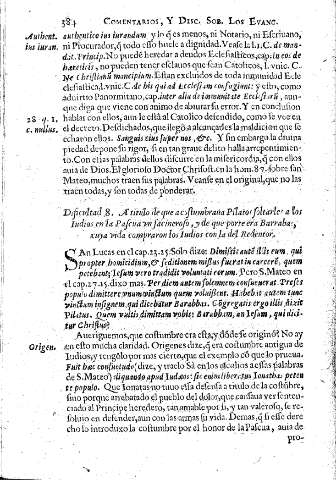 384 COMENTARIOS, Y DISC. SOB. LOS EVANG.
Authent. ius iuran.
authentico ius iurandum y lo q̃ es menos, ni Notario, ni Escriuano,
ni Procurador, q̃ todo esso huele a dignidad. Vease la l. 1. C. de man-
dat. Princip. No puedé heredar a deudos Eclesiasticos, cap. in eos de
hæreticis, no pueden tener esclauos que sean Catolicos, l. vnic. C.
Ne Christianũ mancipium. Estan excluidos de toda inmunidad Ecle
clesiastica, l. vnic. C. de his qui ad Ecclesiam confugiunt: y esto, como
aduirtio Panormitano, cap. inter alia de immunitate Ecclesiarũ, aun-
que diga que viene con animo de abjurar su error. Y en conclusion
28. q. 1. c. nullus.
hablas con ellos, aun le està al Catolico defendido, como se vee en
el decreto. Desdichados, que llegò a alcançarles la maldicion que se
echaron ellos. Sanguis eius super nos, &c. Y sin embargo la diuina
piedad depone su rigor, si en tan graue delito halla arrepentimien-
to. Con estas palabras dellos discurre en la misericordia, q̃ con ellos
aura de Dios. El glorioso Doctor Chrisost. en la hom. 87. sobre san
Mateo, muchos traen sus palabras. Veanse en el original, que no las
traen todas, y son todas de ponderar.
Dificultad 8. A titulo de que acostumbraua Pilatos soltarles a los
Iudios en la Pascua vn facineroso, y de que porte era Barrabas,
cuya vida compraron los Iudios con la del Redentor.
SAn Lucas en el cap. 23. 25. Solo dize: Dimisit autē illis eum, qui
propter homicidium, & seditionem missus fuerat in carcerē, quem
petebant; Iesum vero tradidit voluntati eorum. Pero S. Mateo en
el cap. 27. 15. dixo mas. Per diem autem solemnem consueuerat Preses
populo dimittere vnum vinctum quem voluissent. Habebat autem tunc
vinctum insignem, qui dicebatur Barabbas. Congregatis ergo illis dixit
Pilatus. Quem vultis dimittam vobis: Barabbam, an Iesum, qui dici-
tur Christus?
Aueriguemos, que costumbre era esta, y dōde se originò? No ay
Origen.
en esto mucha claridad. Origenes dize, q̃ era costumbre antigua de
Iudios, y tengolo por mas cierto, que el exemplo cō que lo prueua.
Fuit hæc consuetudo, dize, y traelo Sà en los escolios a essas palabras
de S. Mateo, aliquando apud Iudæos: sic enim liberatus Ionathas peten
te populo. Que Ionatas no tuuo essa defensa a titulo de la costũbre,
sino porque arrebatado el pueblo del dolor, que causaua ver senten-
ciado al Principe heredero, tan amable por si, y tan valeroso, se re-
soluio en defender, aun con las armas su vida. Demas, q̃ si esse dere
cho lo introduxo la costumbre por el honor de la Pascua, auia de
pro-